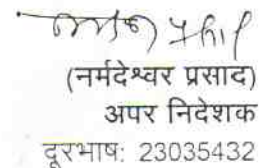 (नर्मदेश्वर प्रसाद)
अपर निदेशक
दूरभाष: 23035432